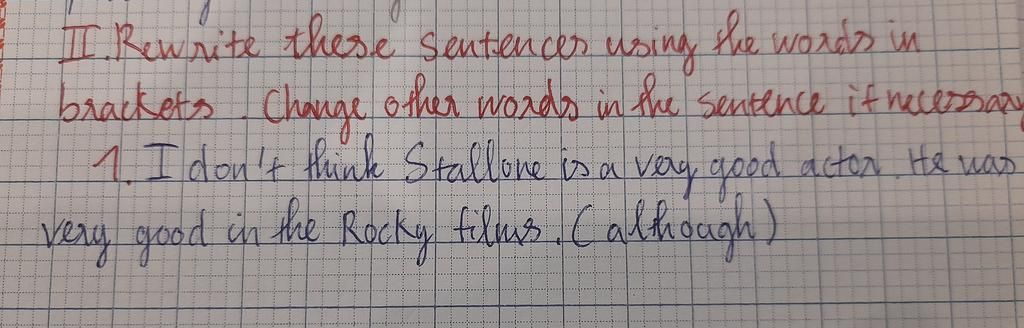 II. Rewrite these sentences using the words in
brackets. Change other words in the sentence if necessary
1. I don't think Stallone is a very good actor. He was
very good in the Rocky films. (although)